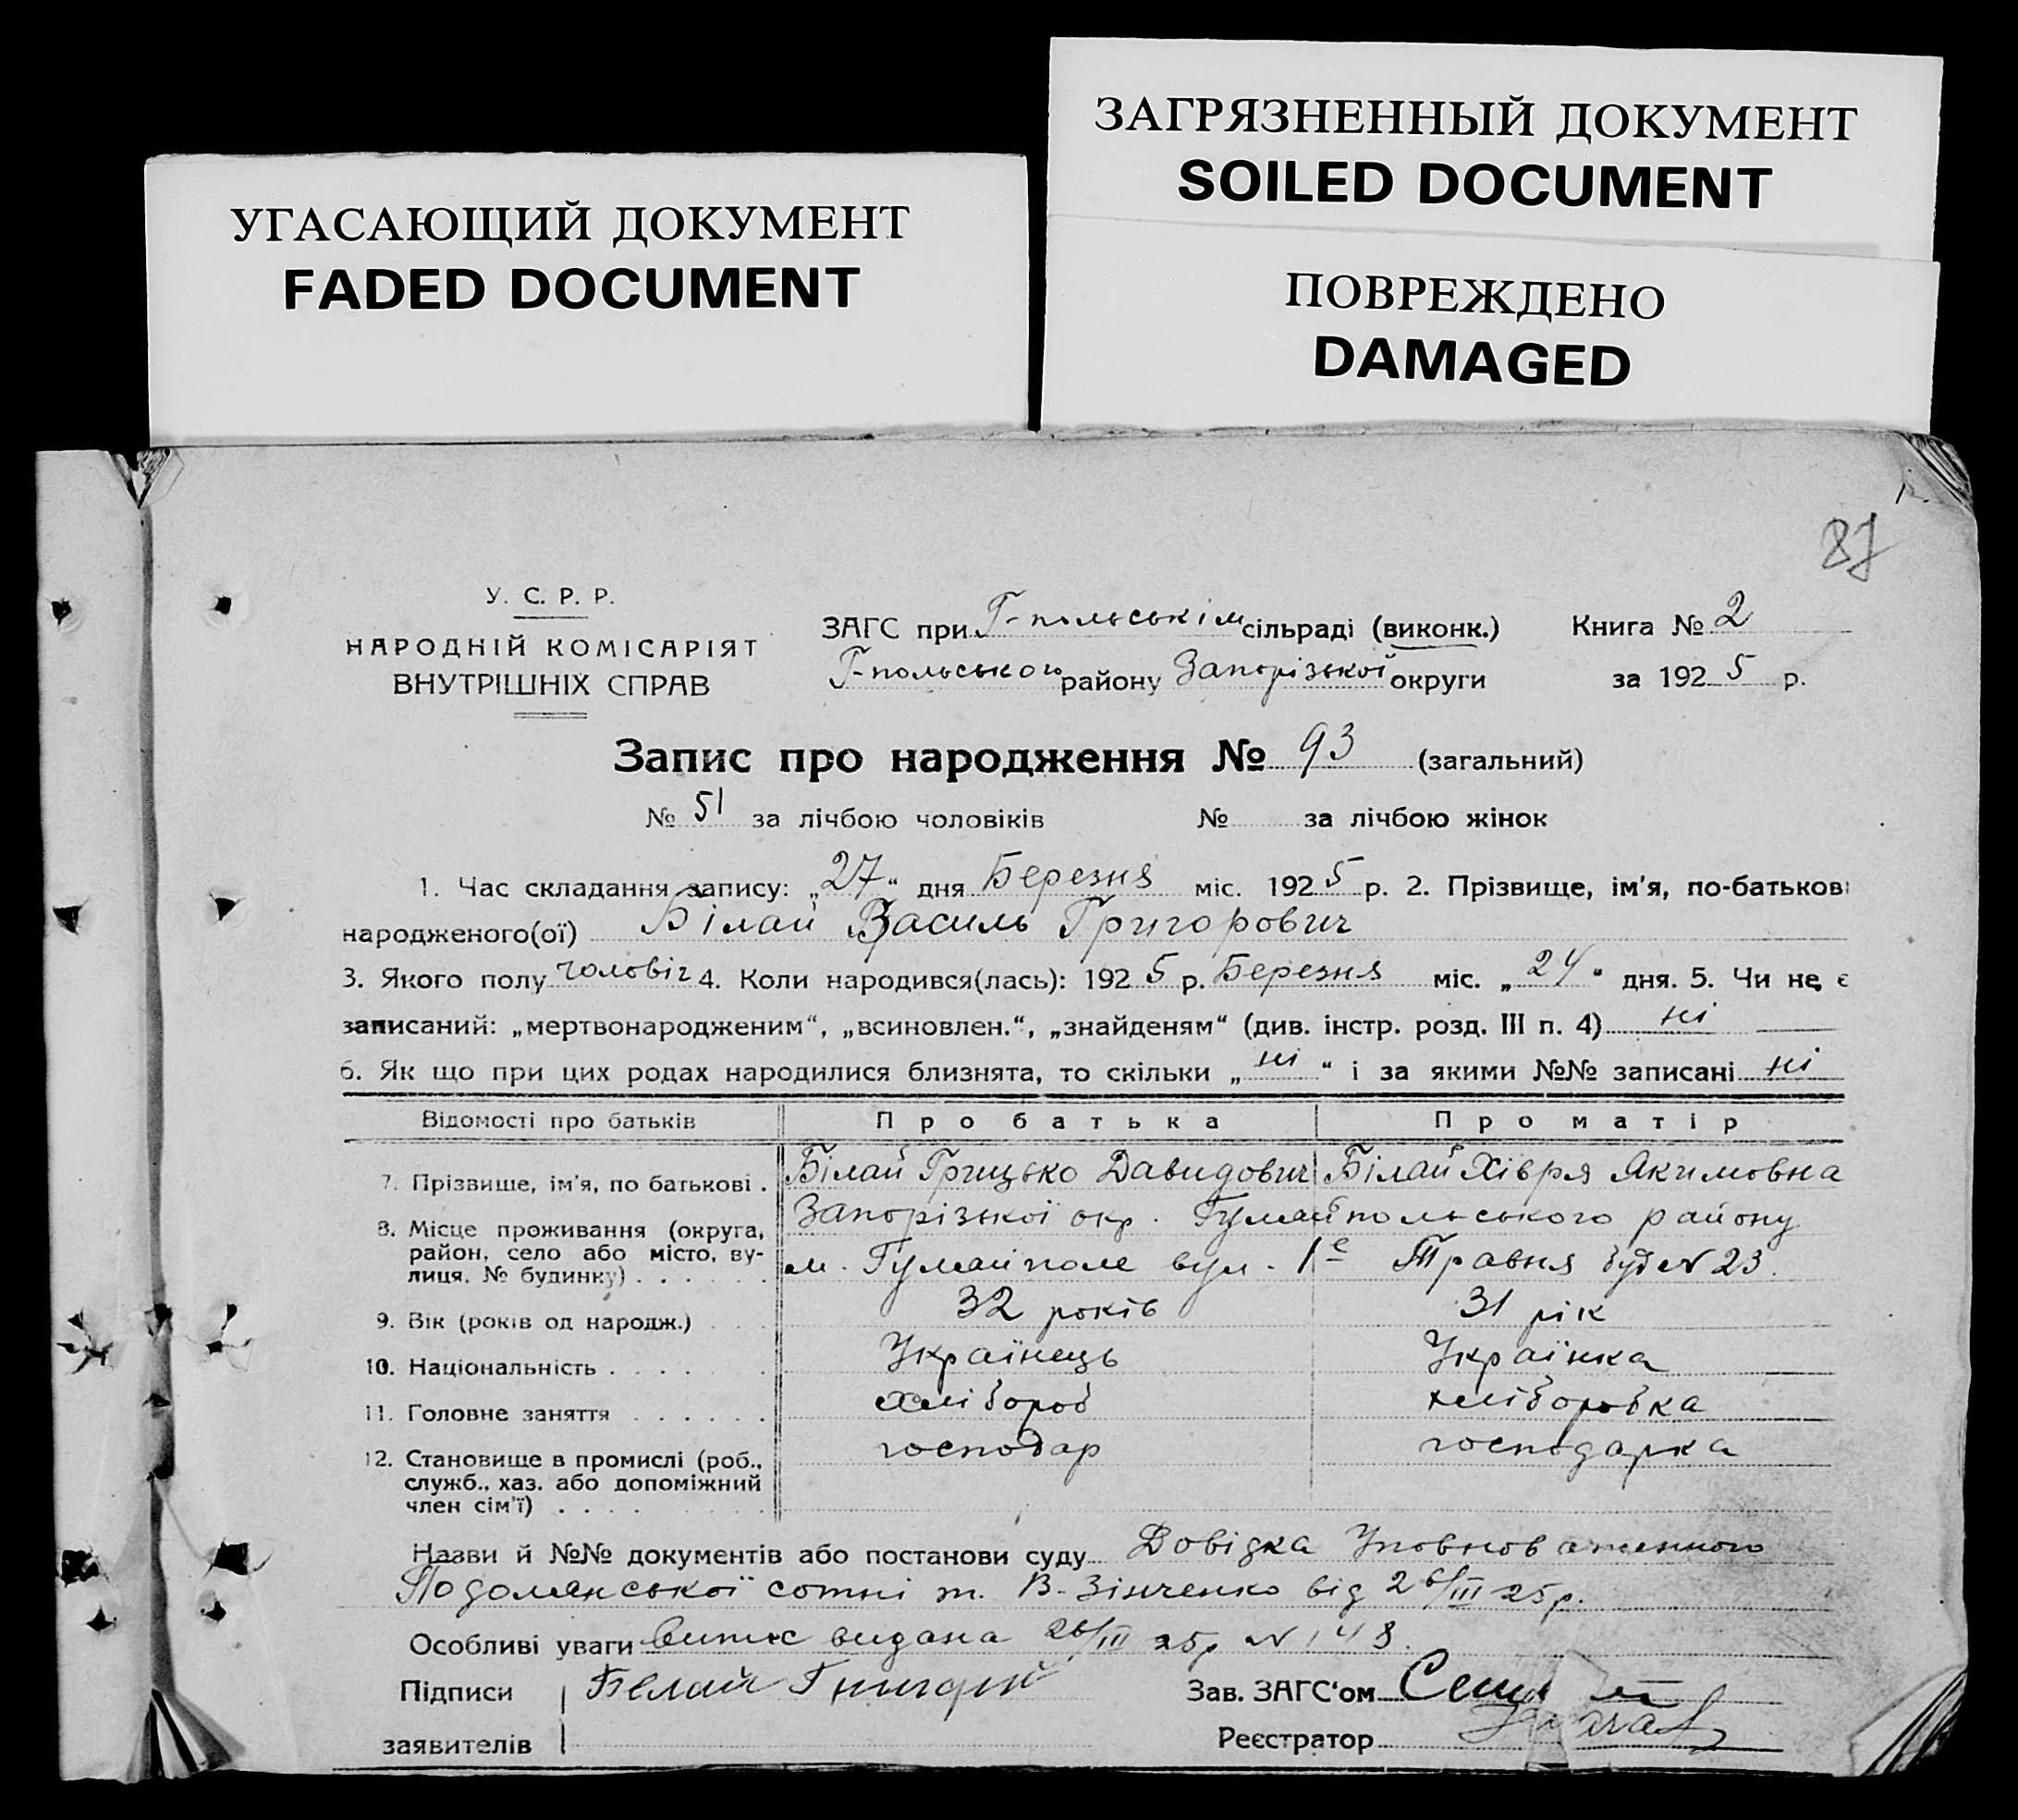 ЗАГРЯЗНЕННЫЙ ДОКУМЕНТ
SOILED DOCUMENT
УГАСАЮЩИЙ ДОКУМЕНТ
FADED DOCUMENT
ПОВРЕЖДЕНО
DAMAGED
87
У. С. Р. Р.
НАРОДНІЙ КОМІСАРІЯТ
ВНУТРІШНІХ СПРАВ
ЗАГС при Г-польськім сільраді (виконк.) Книга № 2
Г-польського району Запорізької округи за 1925 р.
Запис про народження № 93 (загальний)
№ 51 за лічбою чоловіків № за лічбою жінок
1. Час складання запису: „27“ дня Березня міс. 1925 р. 2. Прізвище, ім'я, по-батькові
народженого(ої) Білай Василь Григорович
3. Якого полу чоловіч 4. Коли народився(лась): 1925 р. Березня міс. „24“ дня. 5. Чи не є
записаний: „мертвонародженим“, „всиновлен.“, „знайденям“ (див. інстр. розд. III п. 4) ні
6. Як що при цих родах народилися близнята, то скільки „ні“ і за якими №№ записані ні
Відомості про батьків Про батька Про матір
7. Прізвище, ім'я, по батькові . Білай Грицько Давидович Білай Хівря Якимовна
8. Місце проживання (округа, район, село або місто, вулиця, № будинку) . . . . . . Запорізької окр. Гуляйпольського району
м. Гуляйполе вул. 1е Травня буд № 23.
9. Вік (років од народж.) . . . 32 років 31 рік
10. Національність . . . . . . Українець Українка
11. Головне заняття . . . . . . хлібороб хліборобка
12. Становище в промислі (роб., служб., хаз. або допоміжний член сім'ї) . . . . господар господарка
Назви й №№ документів або постанови суду Довідка Уповноваженного
Подолянської сотні т. В. Зінченко від 26/III 25р.
Особливі уваги Витяс видана 26/III 25р № 148.
Підписи Белай Григорій Зав. ЗАГС'ом
заявителів Реєстратор